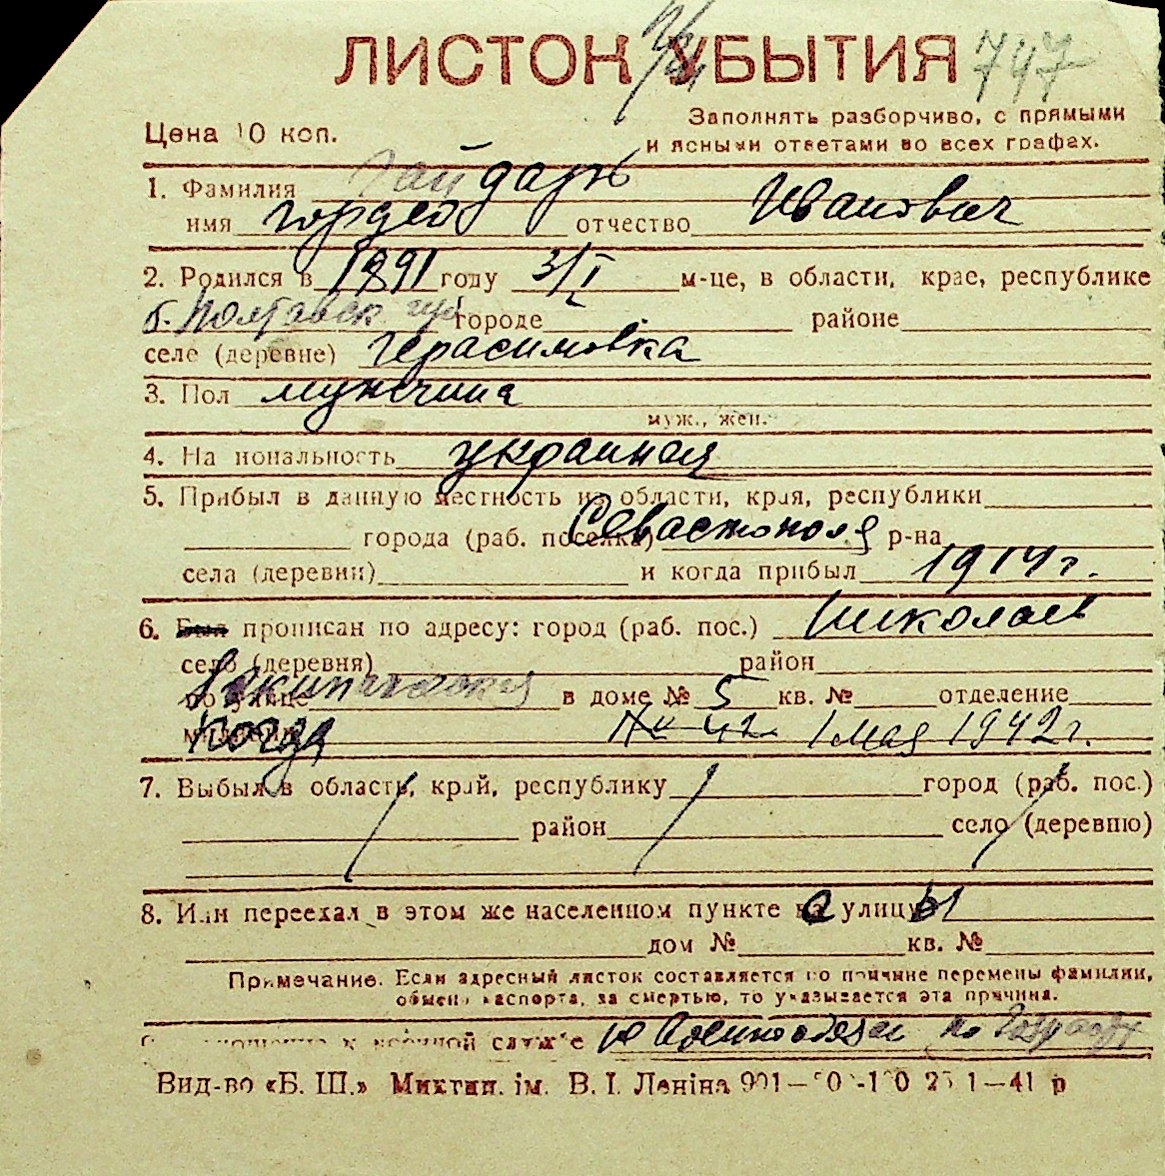 ЛИСТОК УБЫТИЯ 747
Цена 10 коп.
Заполнять разборчиво, с прямыми
и ясными ответами во всех графах.
1. Фамилия Гайдарь
имя Гордей отчество Иванович
2. Родился в 1891 году 3/I м-це, в области, крае, республике
б. Полтавск. губ городе районе
селе (деревне) Герасимовка
3. Пол мужчина
муж., жен.
4. Национальность
5. Прибыл в данную местность из области, края, республики
города (раб. поселка) Севастополя р-на
села (деревни) и когда прибыл 1914 г.
6. Был прописан по адресу: город (раб. пос.) Николаев
село (деревня) район
по улице в доме № 5 кв. № отделение
милиции когда 1 мая 1942 г.
7. Выбыл в область, край, республику город (раб. пос.)
район село (деревню)
8. Или переехал в этом же населенном пункте на улицу
дом № кв. №
Примечание. Если адресный листок составляется по причине перемены фамилии,
обмена паспорта, за смертью, то указывается эта причина.
военной службе по возрасту
Вид-во «Б. Ш.» Миктип. ім. В. І. Леніна